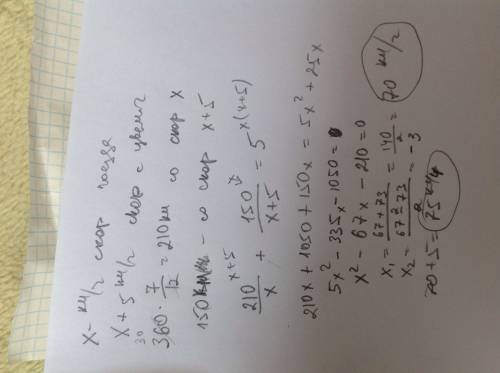 x - км/ч скор поезда
x + 5 км/ч скор с увелич
30
360 · 7/12 = 210 км со скор x
150 км - со скор x+5
210/x ^(x+5) + 150/(x+5) ^x = 5 ^x(x+5)
210x + 1050 + 150x = 5x² + 25x
5x² - 335x - 1050 = 0
x² - 67x - 210 = 0
x₁ = (67 + 73)/2 = 140/2 = 70 км/ч
x₂ = (67 - 73)/2 = -3
70 + 5 = 75 км/ч